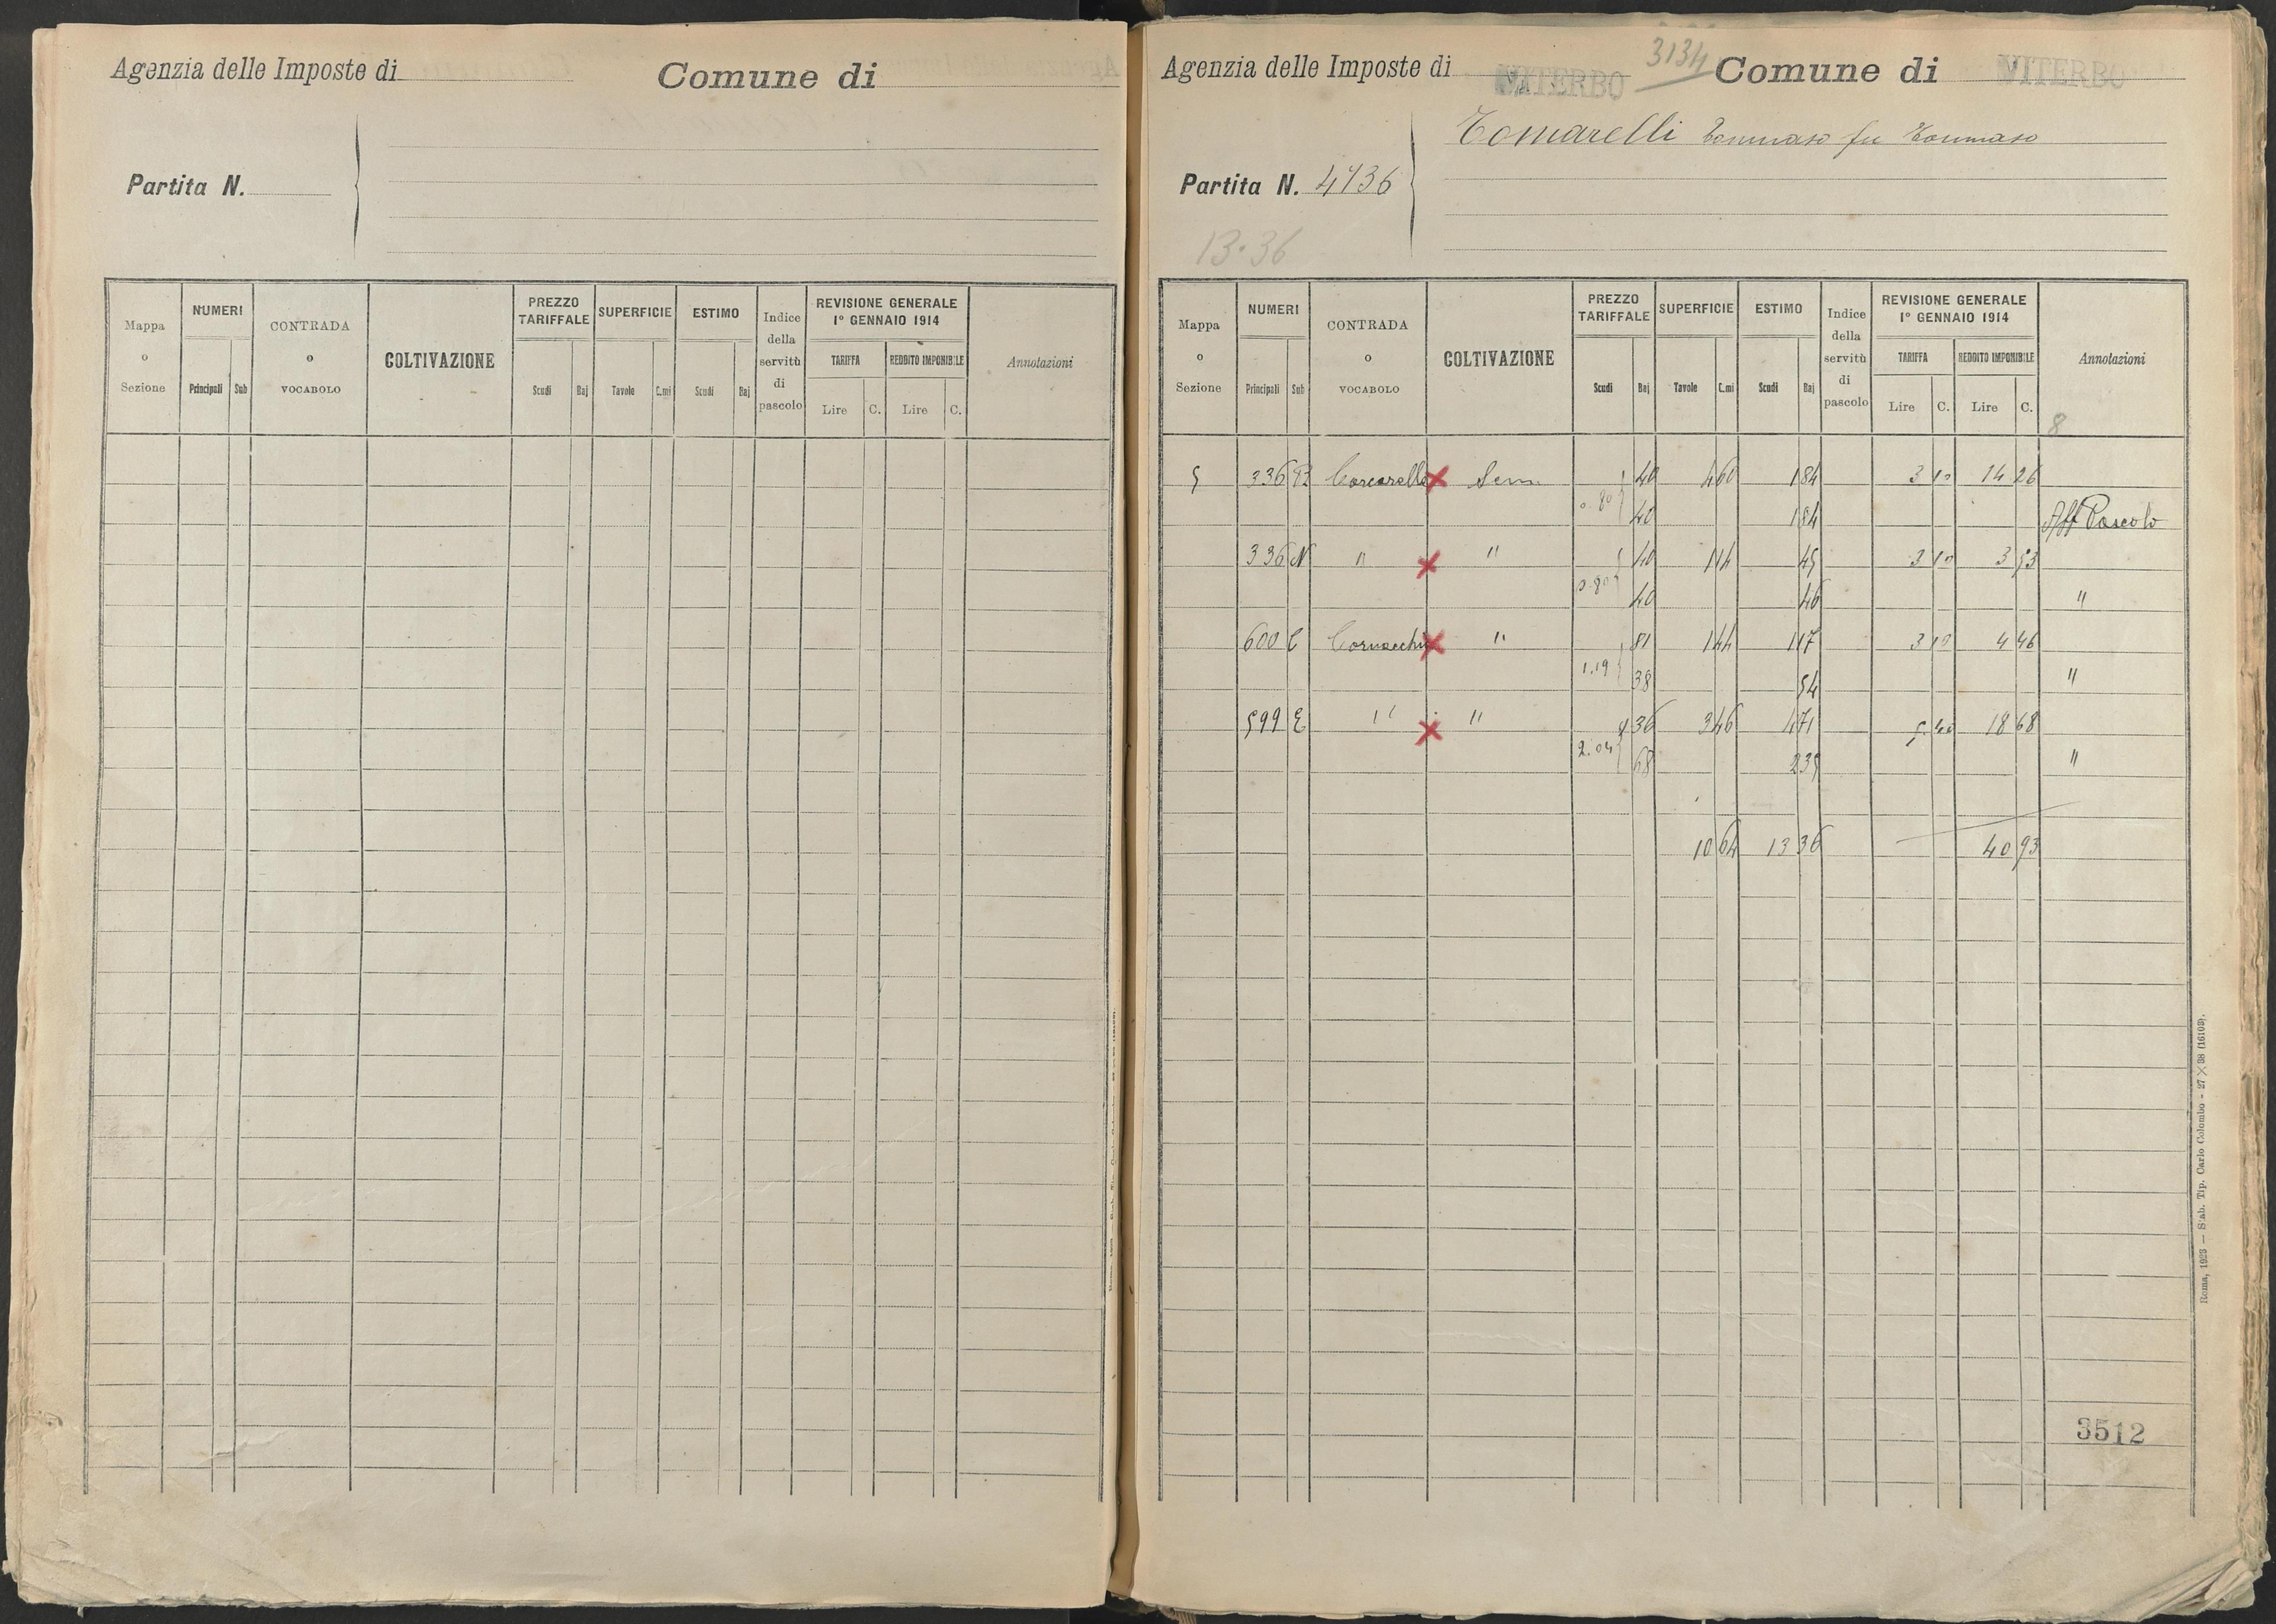 Agenzia delle Imposte di
Comune di
Partita N.
Mappa o Sezione
NUMERI
Principali Sub
CONTRADA o VOCABOLO
COLTIVAZIONE
PREZZO TARIFFALE
Scudi Baj
SUPERFICIE
Tavole C.mi
ESTIMO
Scudi Baj
Indice della servitù di pascolo
REVISIONE GENERALE
1° GENNAIO 1914
TARIFFA
Lire C.
REDDITO IMPONIBILE
Lire C.
Annotazioni
3134
Agenzia delle Imposte di VITERBO Comune di VITERBO
Tomarelli Tommaso fu Tommaso
Partita N. 4736
13.36
Mappa o Sezione
NUMERI
Principali Sub
CONTRADA o VOCABOLO
COLTIVAZIONE
PREZZO TARIFFALE
Scudi Baj
SUPERFICIE
Tavole C.mi
ESTIMO
Scudi Baj
Indice della servitù di pascolo
REVISIONE GENERALE
1° GENNAIO 1914
TARIFFA
Lire C.
REDDITO IMPONIBILE
Lire C.
Annotazioni
8
5 336 Sem. 40 4 60 1 84 3 10 14 26
0.80 40 1 84 Aff Pascolo
336 N " " 40 1 14 45 3 10 3 53
0.80 40 46 "
600 " 81 1 44 1 17 3 10 4 46
1.19 38 54 "
599 E " " 1 36 3 46 4 71 5 40 18 68
2.04 68 2 35 "
10 64 13 36 40 93
3512
Roma, 1923 — Stab. Tip. Carlo Colombo - 27 × 38 (16103).